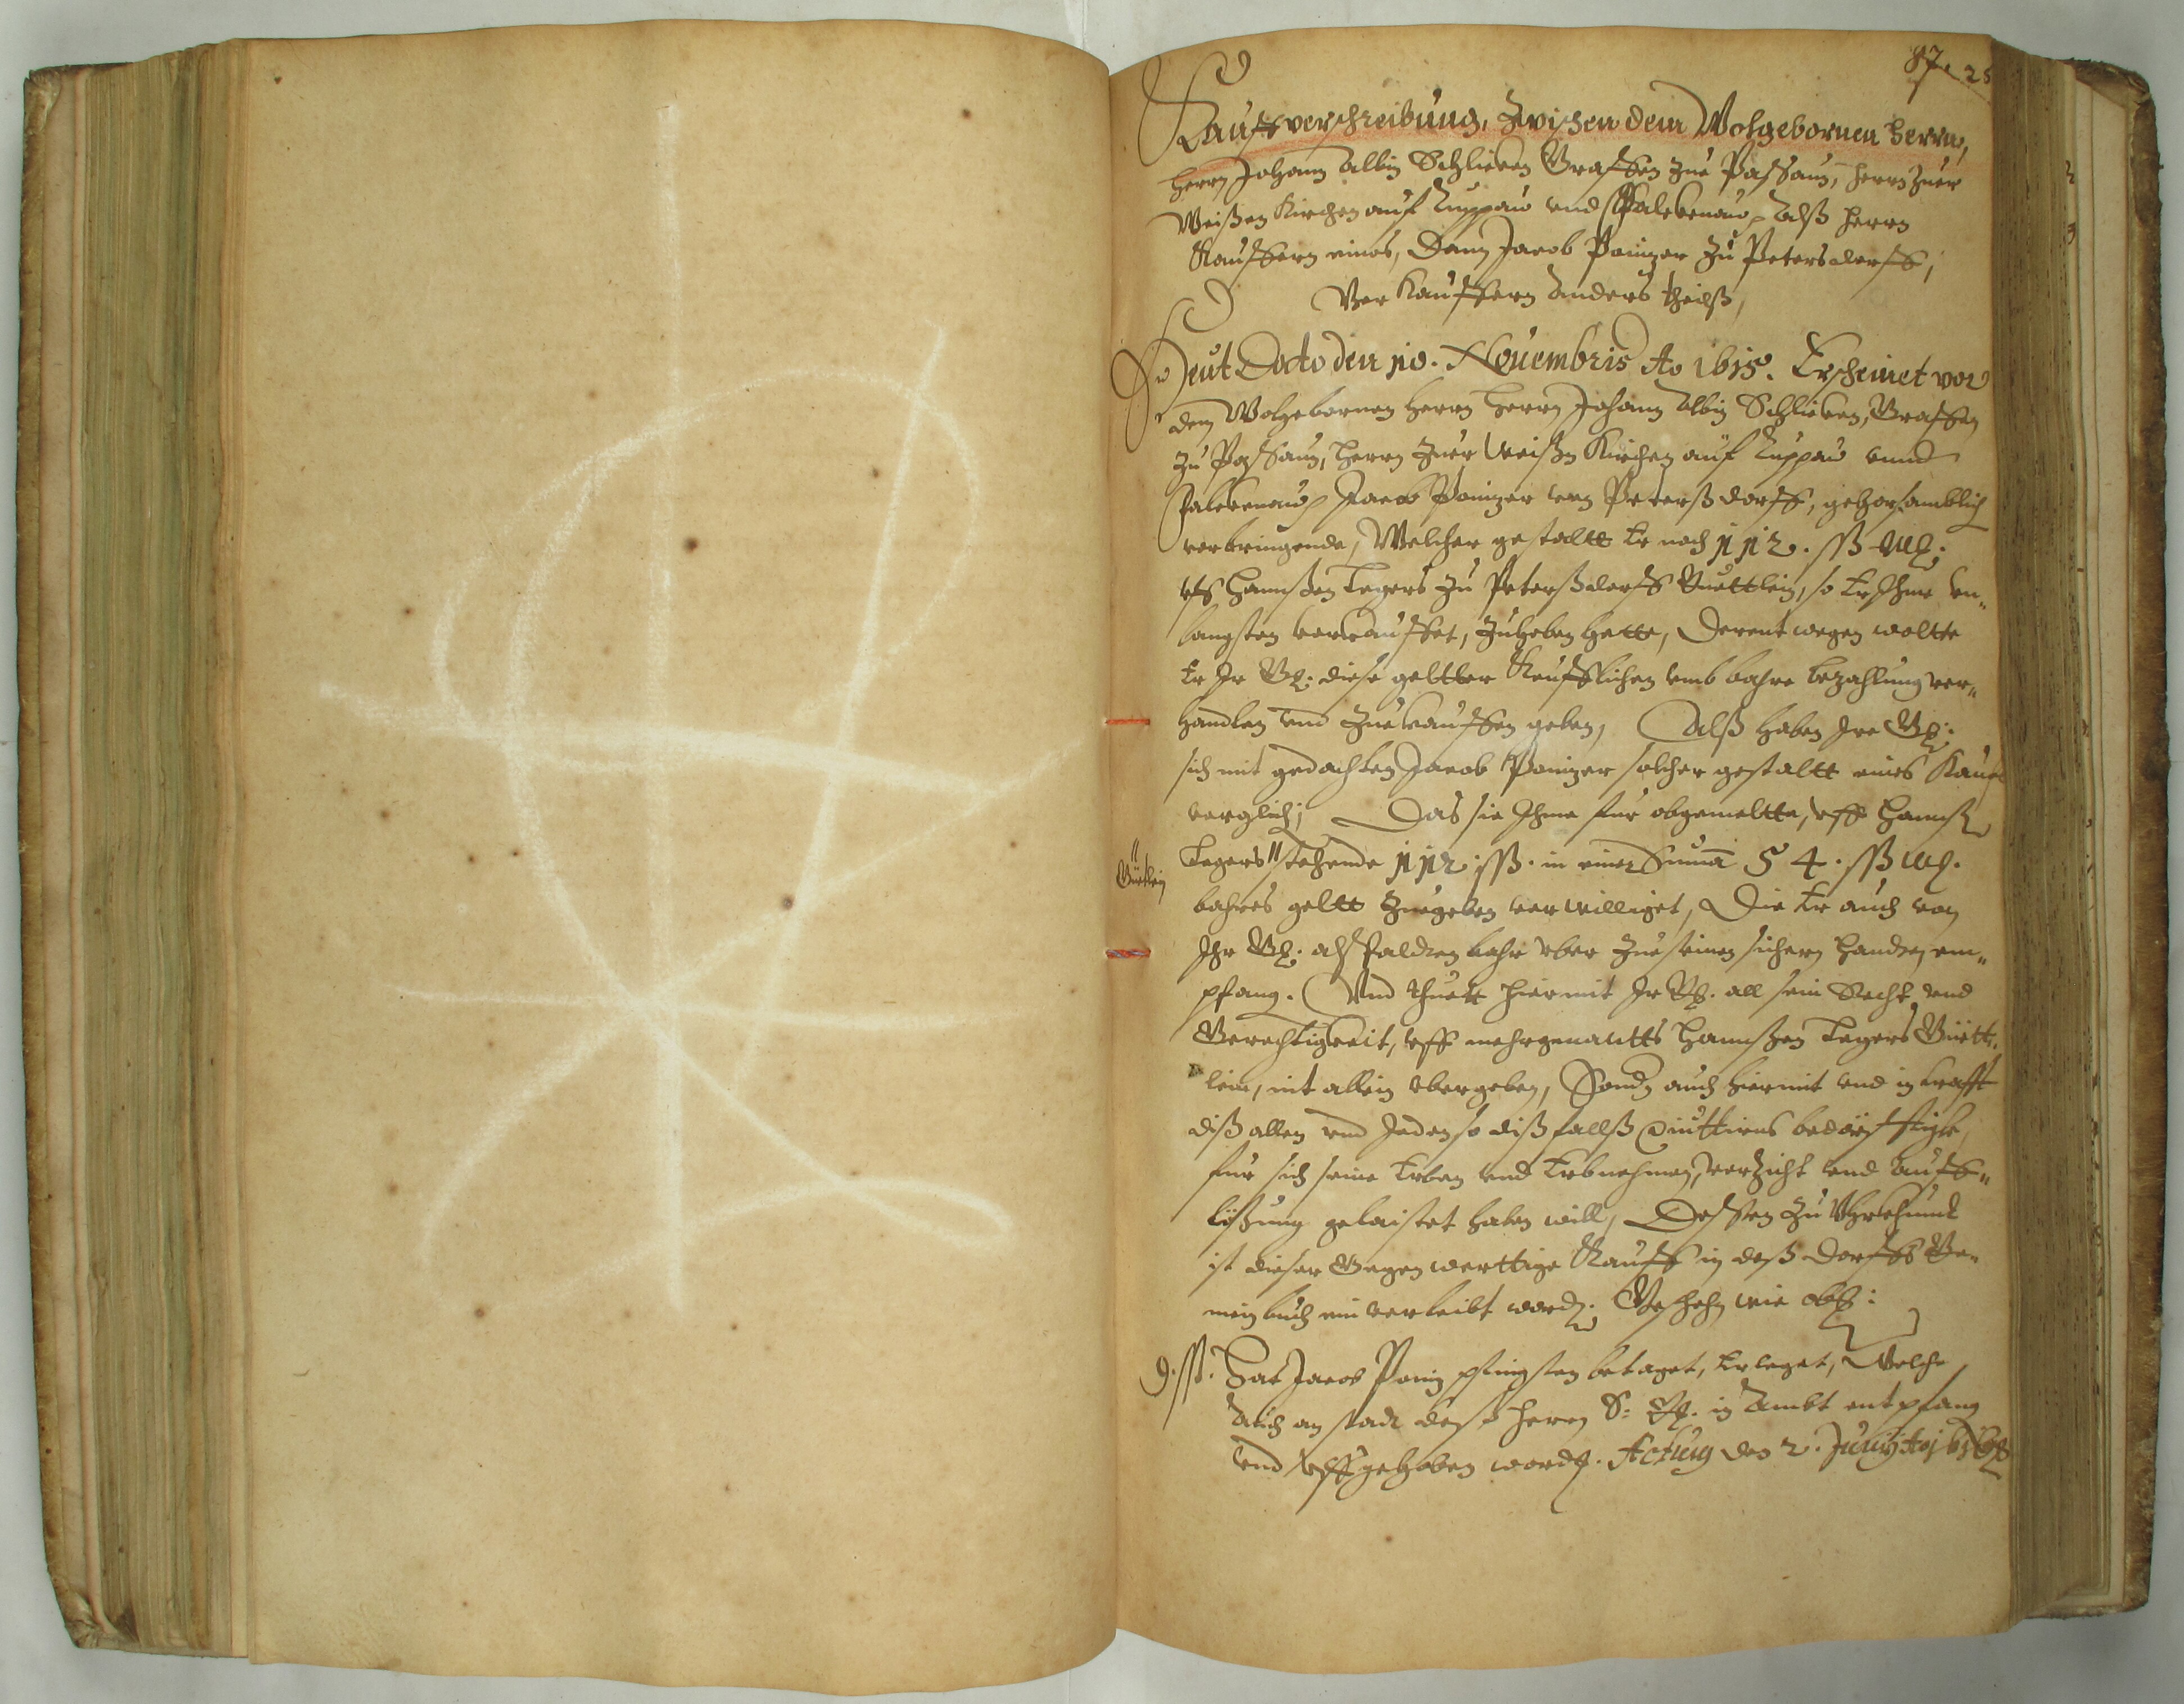 87. 25
Kauffverschreibung, Zwischen dem Wolgebornen herrn,
Herrn Johann Albin Schlicken Graffen zue Passaun, Herrn Zuer
Weißen Kirchen auf Luppau vnd Falckenau, Alß Herrn
Kauffern eines, Dann Jacob Painzer Zu Petersdorff,
Verkauffern Anders theilß,
Heut Dato den 10. Nouembris Ao 1615. Erscheinet vor
dem Wolgebornen Herrn Herrn Johann Albin Schlicken, Graffen
zu Passaun, Herrn Zuer Weißen Kirchen auf Luppau vnnd
Falckenau, Jacob Painzer von Peterßdorff, gehorsamblich
vorbringende, Welcher gestaltt Er noch 112. ßß
vff Hannßen Legers zu Peterßdorff Guettlein, so Er Ihme vn„
langsten verkauffet, Zuheben hette, Derent wegen woltte
Er Ir G: diese geltter Keufflichen vmb bahre bezahlung ver„
handlen vnd Zuekauffen geben, Alß haben Ire G:
sich mit gedachten Jacob Painzer solcher gestaltt eines Kauf
verglich; Das sie Ihme fur obgemeltte, vff Hannß
Legers stehende 112 ßß. in einer Summa 54. ßß
Güttlein
bahres geltt Zuegeben verwilliget, Die Er auch von
Ihr G: alß balden bahr vber Zue seinen sichern Handen em„
pfang. Vnd thuett hiermit Ir G. all sein Recht vnd
Gerechtigkeit, vff mehrgenantts Hannßen Legers Güett„
lein, nit allein vbergeben, Sondern auch hiermit vnd in krafft
diß allen vnd Jeden so dißfallß Quittirens bedörfftig
fur sich seine Erben vnd Erbnehmen, verzicht vnd Auff„
lößung gelaistet haben will, Dessen zu Vhrkhundt
ist dieser Gegenwerttige Kauff in deß Dorffs Ge„
mein buch ein verleibt word. Geschehn wie obg:
9. ßß. Hat Jacob Pfingsten betaget, Erleget, Welche
Auch an stadt deß Herrn G: in Ambt entpfang
vnd vffgehoben word. Actum den 2. Junij Ao